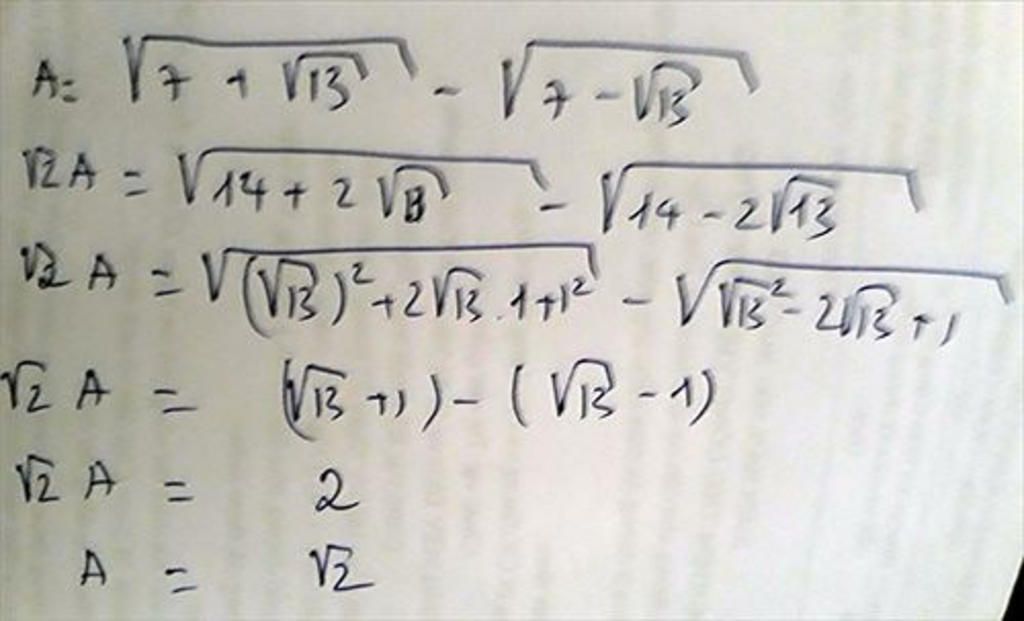 A = √(7 + √13) - √(7 - √13)
√2 A = √(14 + 2√13) - √(14 - 2√13)
√2 A = √((√13)² + 2√13 . 1 + 1²) - √(√13² - 2√13 + 1)
√2 A = (√13 + 1) - (√13 - 1)
√2 A = 2
A = √2